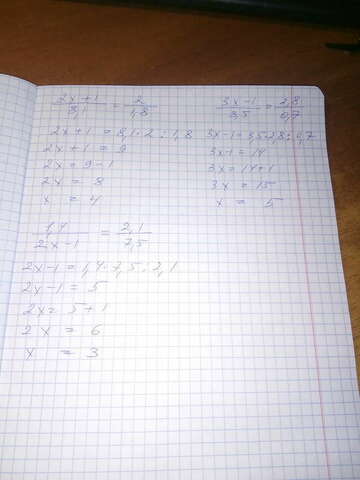 (2x+1)/8,1 = 2/1,8
2x+1 = 8,1 · 2 : 1,8
2x+1 = 9
2x = 9-1
2x = 8
x = 4
(3x-1)/3,5 = 2,8/0,7
3x-1=3,5·2,8:0,7
3x-1=14
3x=14+1
3x = 15
x = 5
1,4/(2x-1) = 2,1/7,5
2x-1=1,4·7,5:2,1
2x-1= 5
2x= 5+1
2x = 6
x = 3